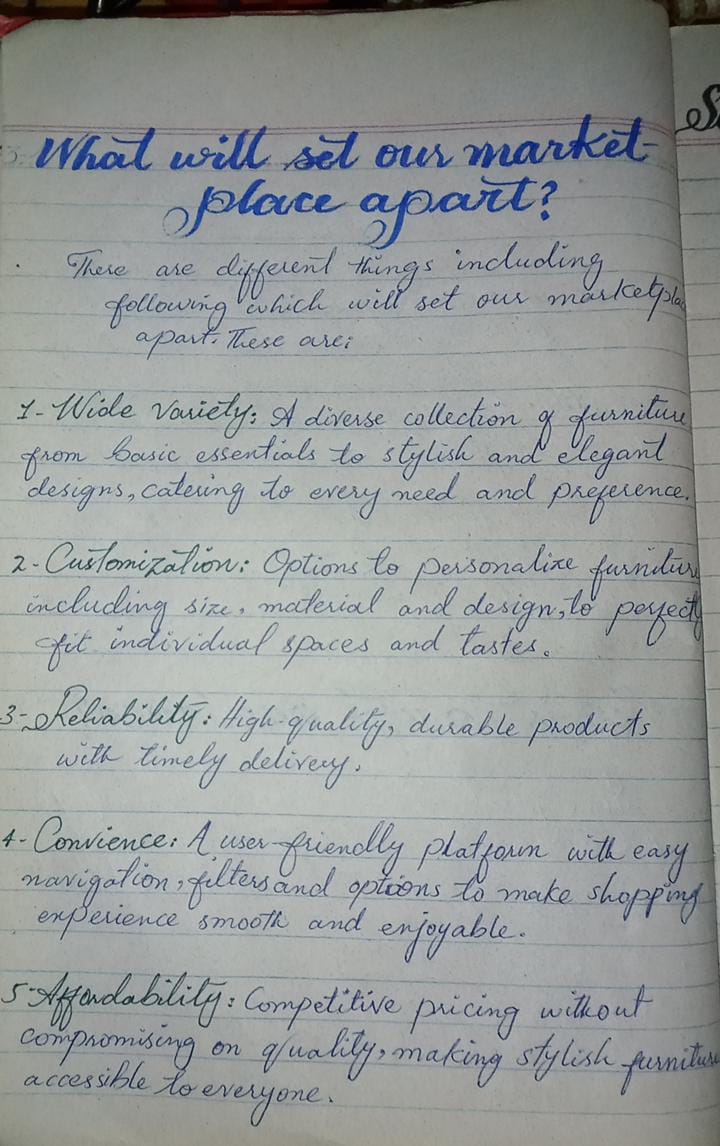 What will set our market-
place apart?
There are different things including
following which will set our marketpla
apart. These are:
1- Wide Variety: A diverse collection of furniture
from basic essentials to stylish and elegant
designs, catering to every need and preference.
2- Customization: Options to personalize furniture
including size, material and design, to perfectly
fit individual spaces and tastes.
3- Reliability: High-quality, durable products
with timely delivery.
4- Convience: A user-friendly platform with easy
navigation, filters and options to make shopping
experience smooth and enjoyable.
5- Affordability: Competitive pricing without
compromising on quality, making stylish furniture
accessible to everyone.